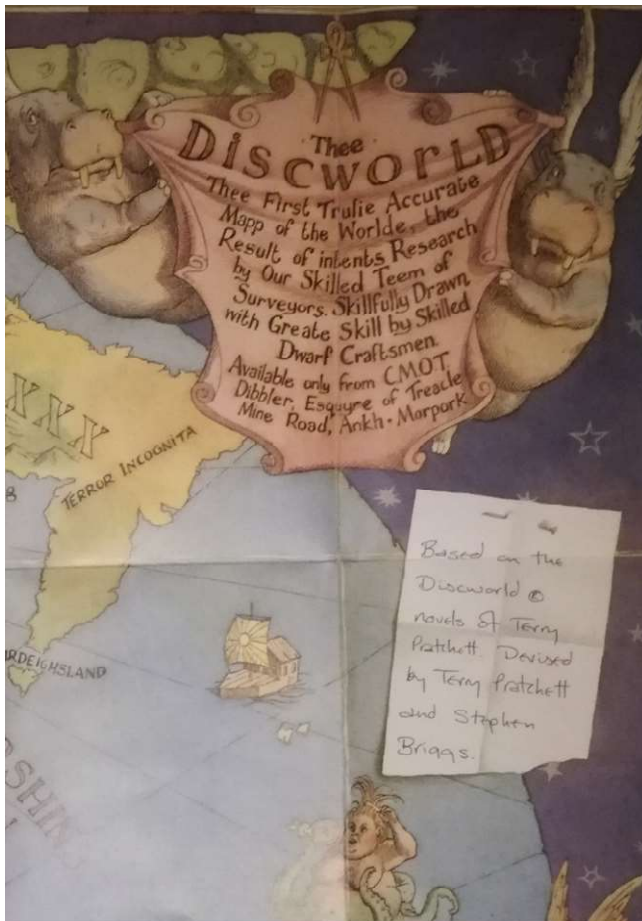 Thee
DISCWORLD
Thee First Trulie Accurate
Mapp of the Worlde, the
Result of intents Research
by Our Skilled Teem of
Surveyors. Skillfully Drawn
with Greate Skill by Skilled
Dwarf Craftsmen.
Available only from CMOT
Dibbler, Esquyre of Treacle
Mine Road, Ankh-Morpork
XXX
TERROR INCOGNITA
Based on the
Discworld ©
novels of Terry
Pratchett. Devised
by Terry Pratchett
and Stephen
Briggs.